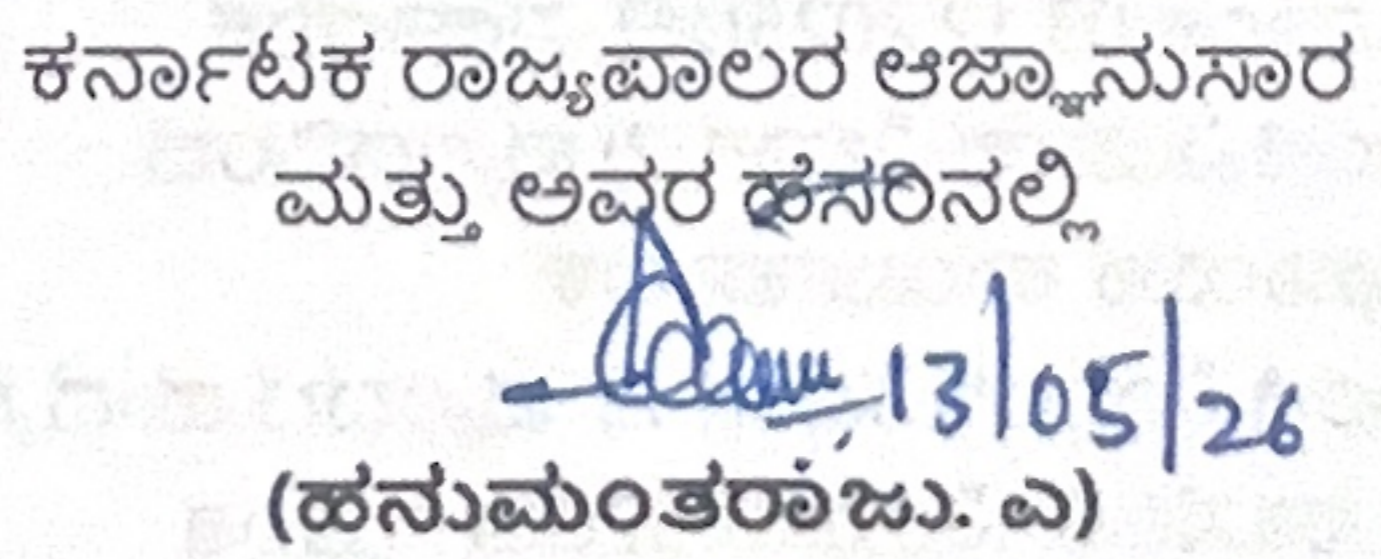 ಕರ್ನಾಟಕ ರಾಜ್ಯಪಾಲರ ಆಜ್ಞಾನುಸಾರ
ಮತ್ತು ಅವರ ಹೆಸರಿನಲ್ಲಿ
13/05/26
(ಹನುಮಂತರಾಜು. ಎ)